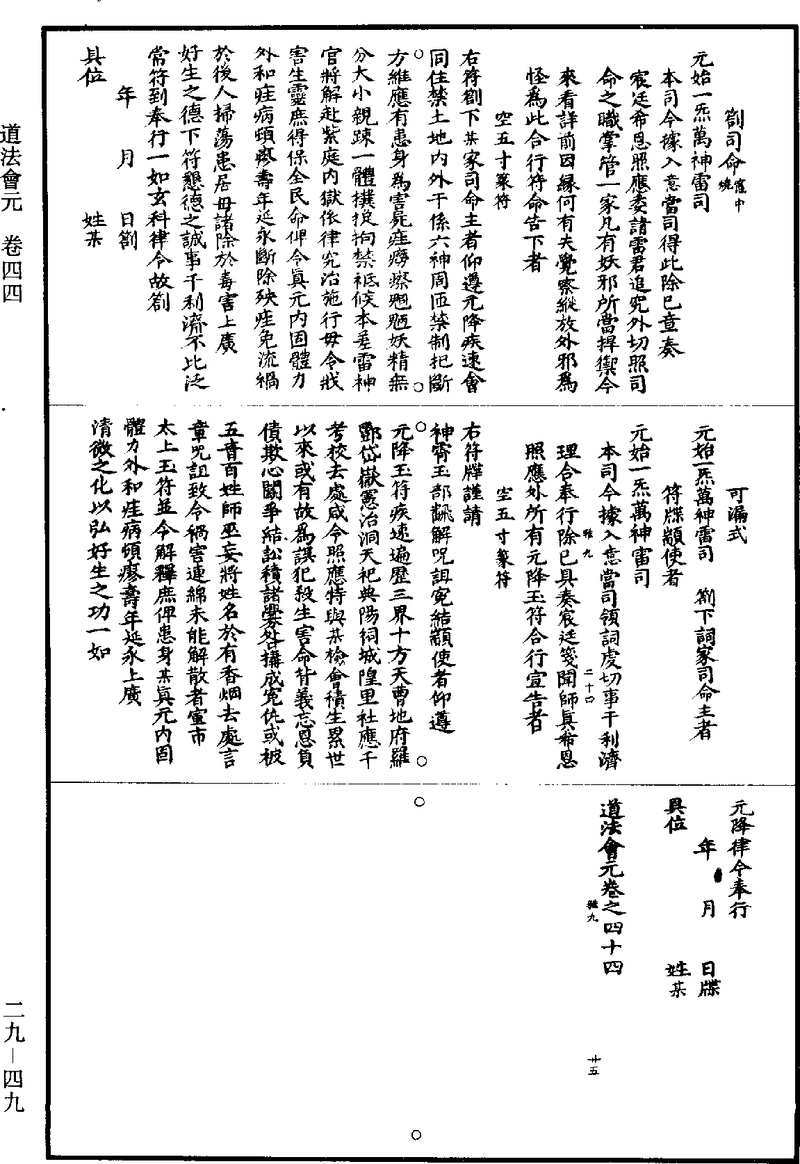 劄司命竈中燒
元始一炁萬神雷司
本司今據入意當司得此除已章奏
宸廷希恩照應委請雷君追究外切照司
命之職掌管一家凡有妖邪所當捍禦今
來看詳前因緣何有失覺察縱放外邪爲
怪爲此合行符命告下者
空五寸篆符
右符劄下某家司命主者仰遵元降疾速會
同住禁土地內外干係六神周匝禁制把斷
方維應有患身爲害屍疰癆瘵魍魎妖精無
分大小親踈一體撲捉拘禁祗候本差雷神
官將解赴紫庭內獄依律究治施行毋令戕
害生靈庶得保全民命俾令眞元內固體力
外和疰病頓瘳壽年延永斷除殃疰免流禍
於後人掃蕩患居毋諸除於毒害上廣
好生之德下符懇德之誠事干利濟不比泛
常符到奉行一如玄科律令故劄
年 月 日劄
具位 姓某
可漏式
元始一炁萬神雷司 劄下詞家司命主者
符牒顓使者
元始一炁萬神雷司
本司今據入意當司領詞虔切事干利濟
雜九 二十四
理合奉行除已具奏宸廷箋聞師眞希恩
照應外所有元降玉符合行宣告者
空五寸篆符
右符牒謹請
神霄玉部飜解呪詛寃結顓使者仰遵
元降玉符疾速遍歷三界十方天曹地府羅
酆岱嶽憲治洞天祀典陽祠城隍里社應千
考校去處咸令照應特與某檢會積生累世
以來或有故爲誤犯殺生害命背義忘恩負
債欺心鬬爭結訟積諸釁咎搆成寃仇或被
五音百姓師巫妄將姓名於有香烟去處言
章呪詛致令禍害連綿未能解散者蜜市
太上玉符並令解釋庶俾患身某眞元內固
體力外和疰病頓瘳壽年延永上廣
清微之化以弘好生之功一如
元降律令奉行
年 月 日牒
具位 姓某
道法會元卷之四十四
雜九 廿五
道法會元 卷四四
二九－四九